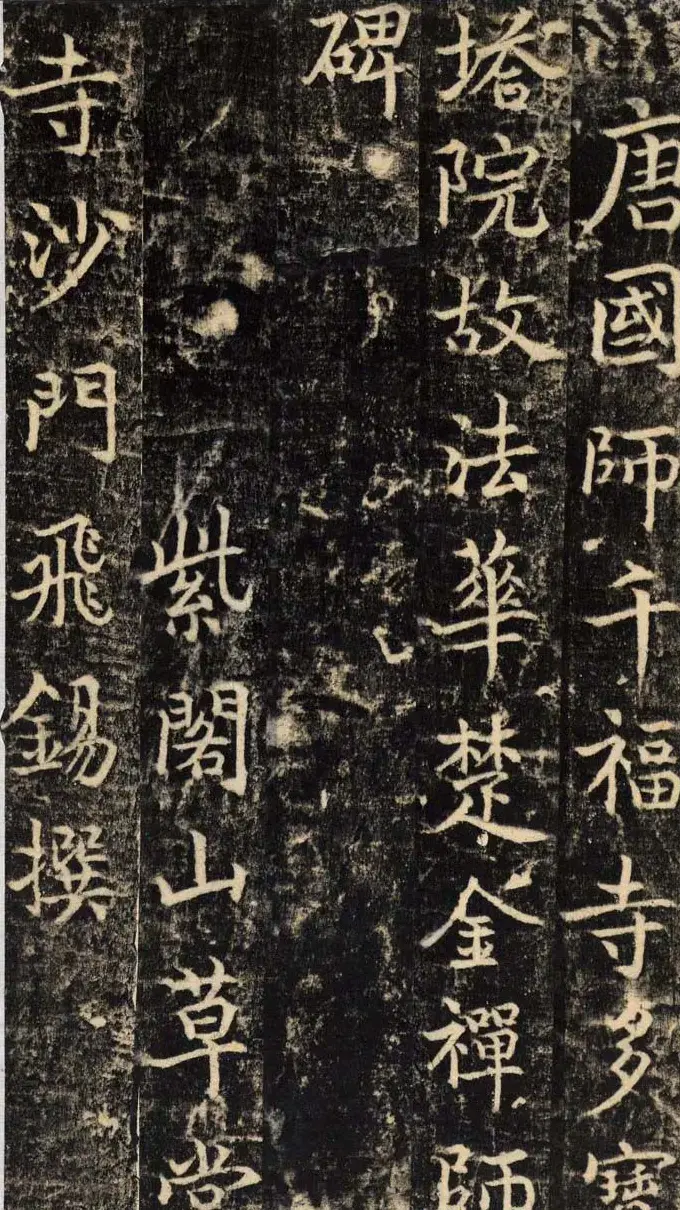 唐國師千福寺多寶
塔院故法華楚金禪師
碑
紫閣山草堂
寺沙門飛錫撰